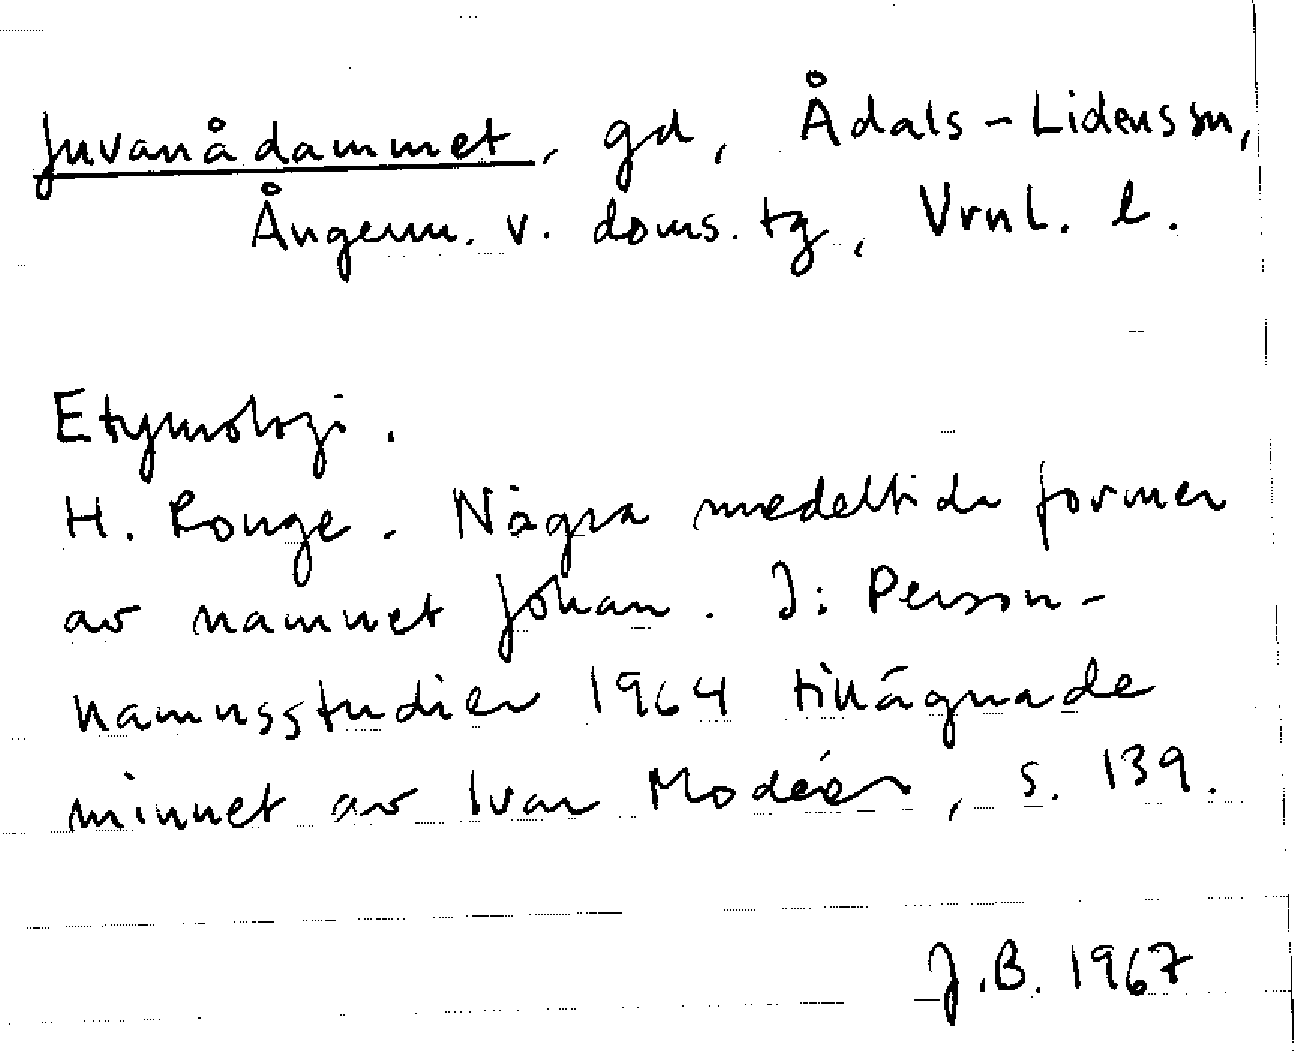 Juvanådammet, gd, Ådals-Lidens sn,
Ångerm. v. doms. tg, Vrnl. l.
Etymologi.
H. Rouge. Några medeltida former
av namnet Johan. I: Person-
namnsstudier 1964 tillägnade
minnet av Ivar Modéer, s. 139.
J.B. 1967